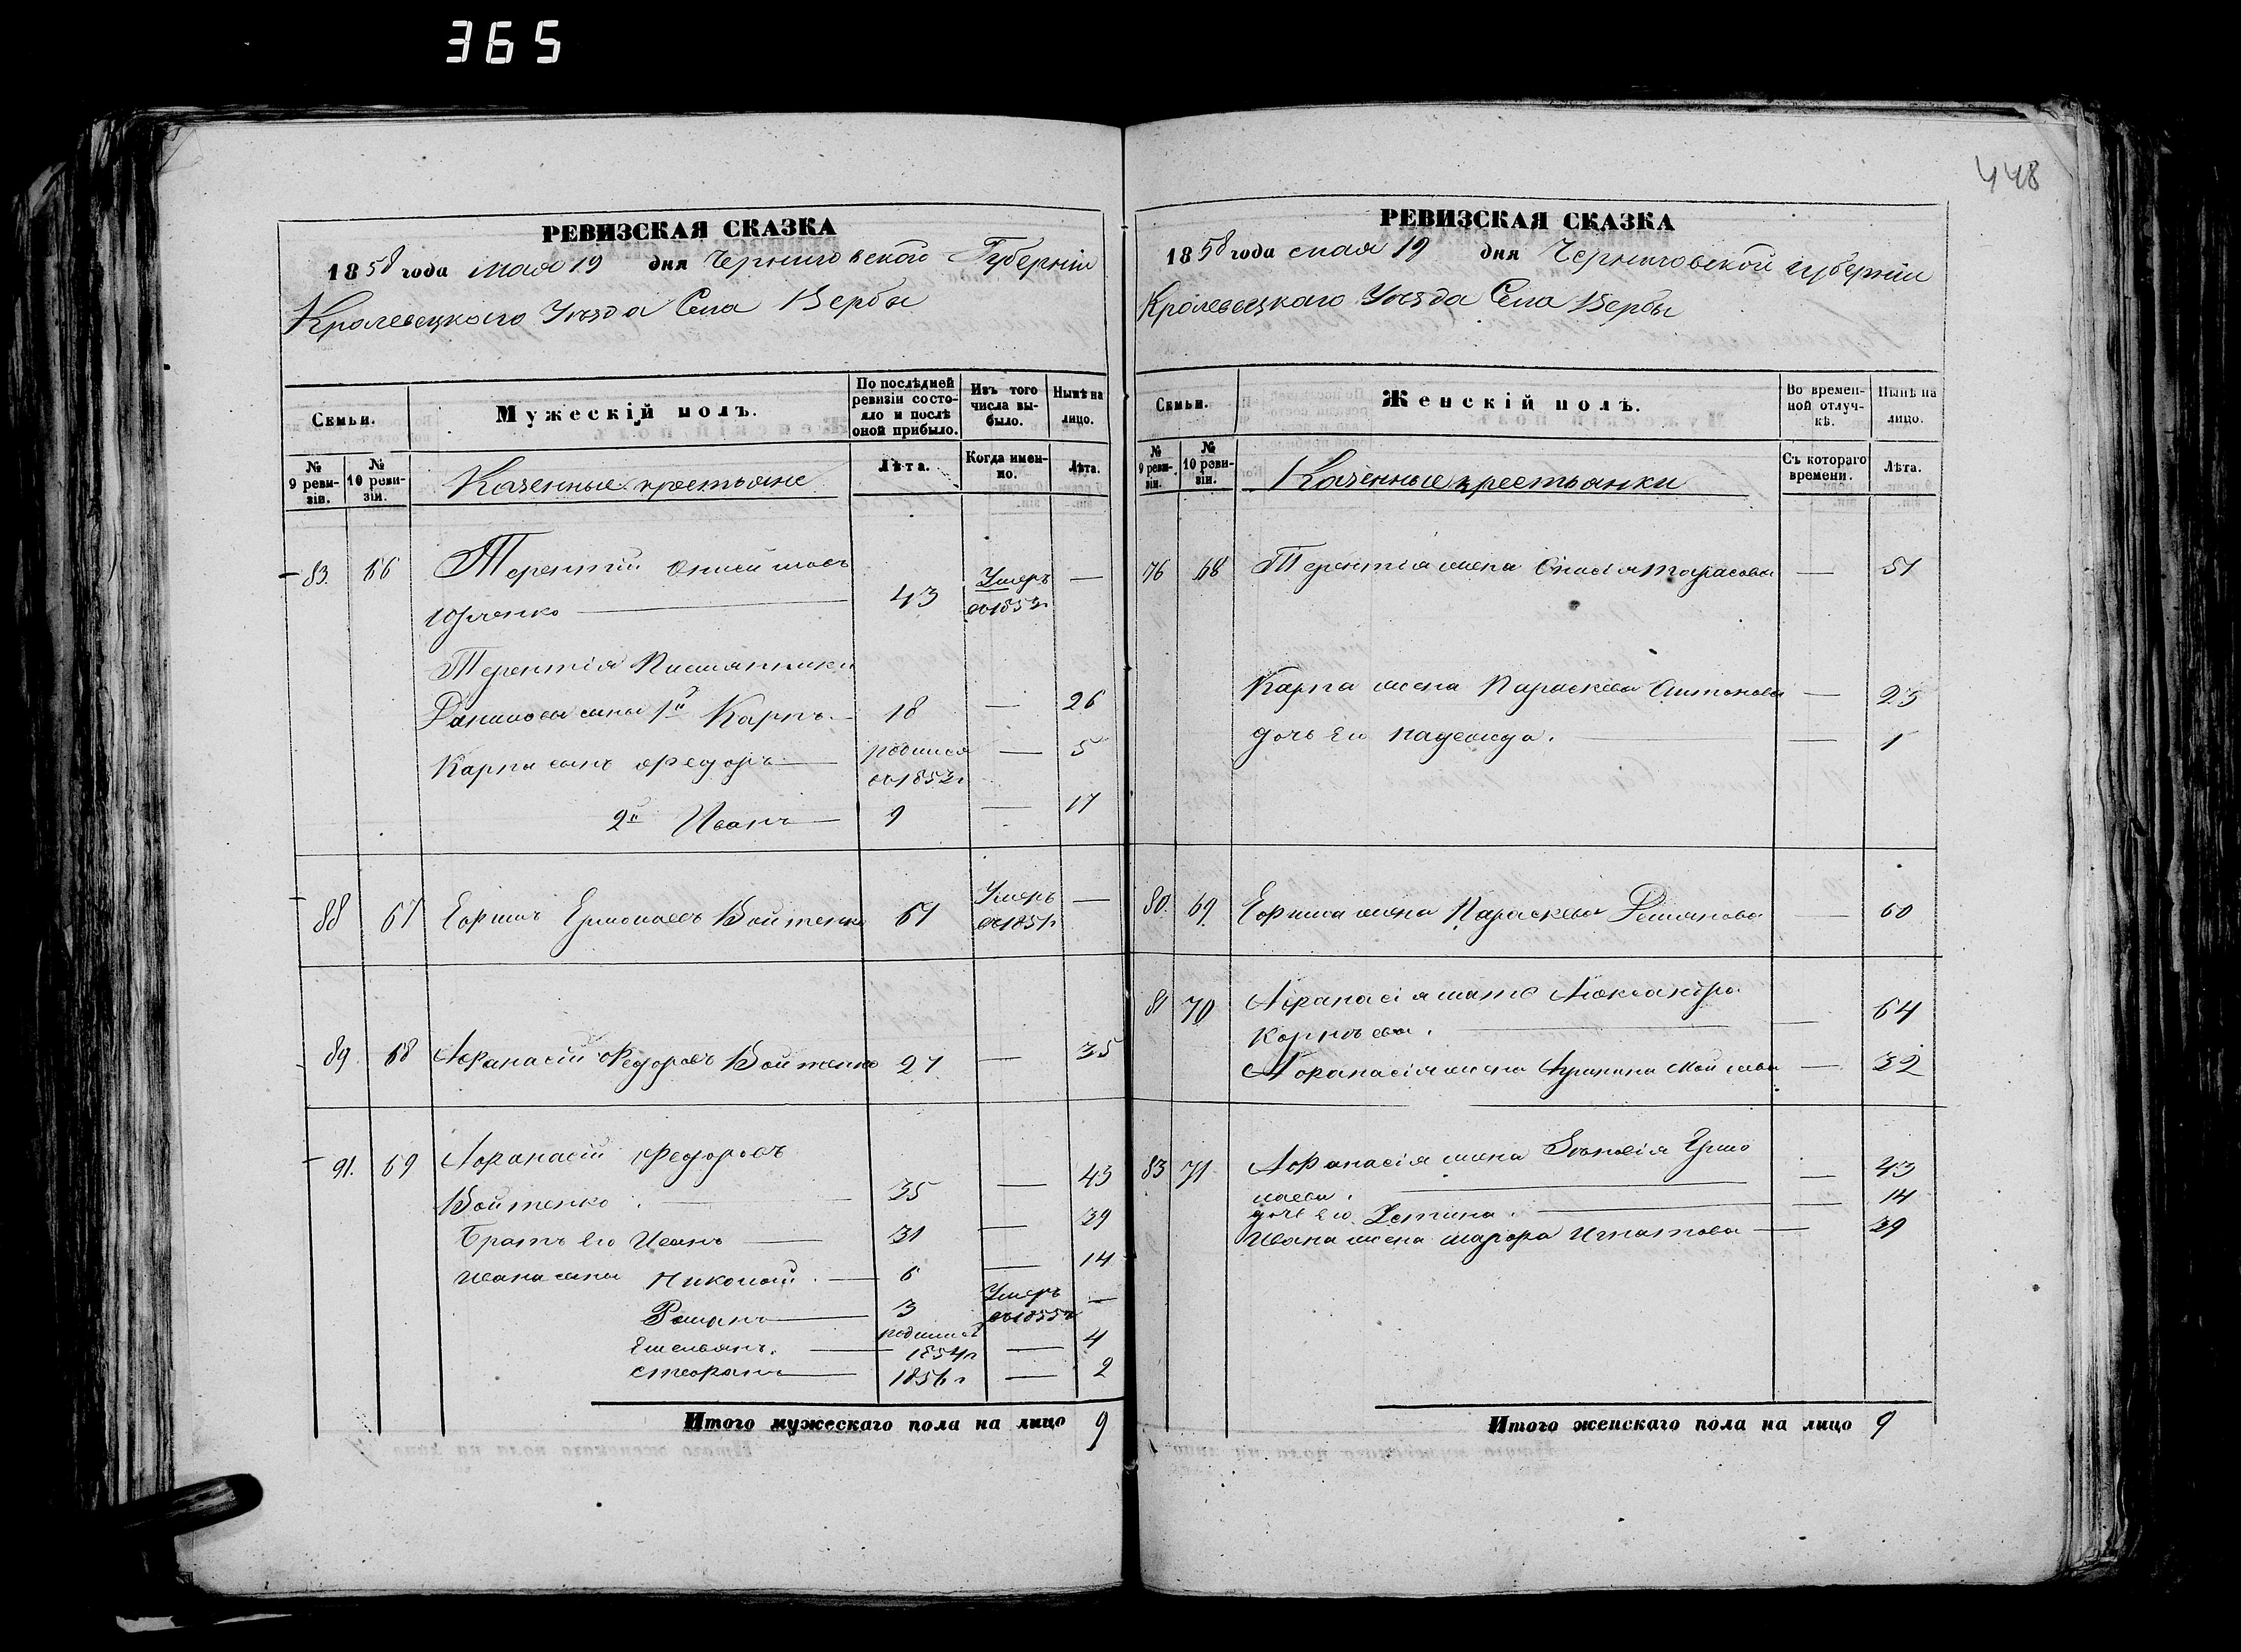 365
448
РЕВИЗСКАЯ СКАЗКА
1858 года мая 19 дня Черниговской Губерніи
Кролевецкаго Уѣзда Села Вербы
Семьи.
Мужескій полъ.
По послѣдней ревизіи состояло и послѣ оной прибыло.
Изъ того числа выбыло.
Нынѣ на лицо.
№ 9 ревизіи.
№ 10 ревизіи.
Казенные крестьяне
Лѣта.
Когда именно.
Лѣта.
83. 66 Терентій
Юрченко 43 Умеръ въ 1853г —
Терентія
сыны 1й Карпъ 18 — 26
Карпа сынъ Федоръ родился въ 1853г — 5
2й Иванъ 9 — 17
88 67 Ермолаевъ Войтенко 61 Умеръ въ 1851г —
89 68 Афанасій Федоровъ Войтенко 27 — 35
91. 69 Афанасій Федоровъ
Войтенко 35 — 43
Братъ его Иванъ 31 — 39
Ивана сыны Николай 6 — 14
Романъ 3 Умеръ въ 1855г —
Емельянъ. родился 1854г — 4
Стефанъ 1856г — 2
Итого мужескаго пола на лицо 9
РЕВИЗСКАЯ СКАЗКА
1858 года мая 19 дня Черниговской губерніи
Кролевецкаго Уѣзда Села Вербы
Семьи.
Женскій полъ.
Во временной отлучкѣ.
Нынѣ на лицо.
№ 9 ревизіи.
№ 10 ревизіи.
Казенные крестьянки
Съ котораго времени.
Лѣта.
76 68 Терентія жена Тарасова — 51
Карпа жена Параскева Антонова — 25
дочь его Надежда. — 1
80. 69. жена Параскева — 60
81 70 Афанасія мать Александра
— 64
Афанасія жена — 32
83 71. Афанасія жена Зѣновія Ермо
лаева. — 43
дочь его Устина. — 14
Ивана жена Марфа Игнатова — 39
Итого женскаго пола на лицо 9